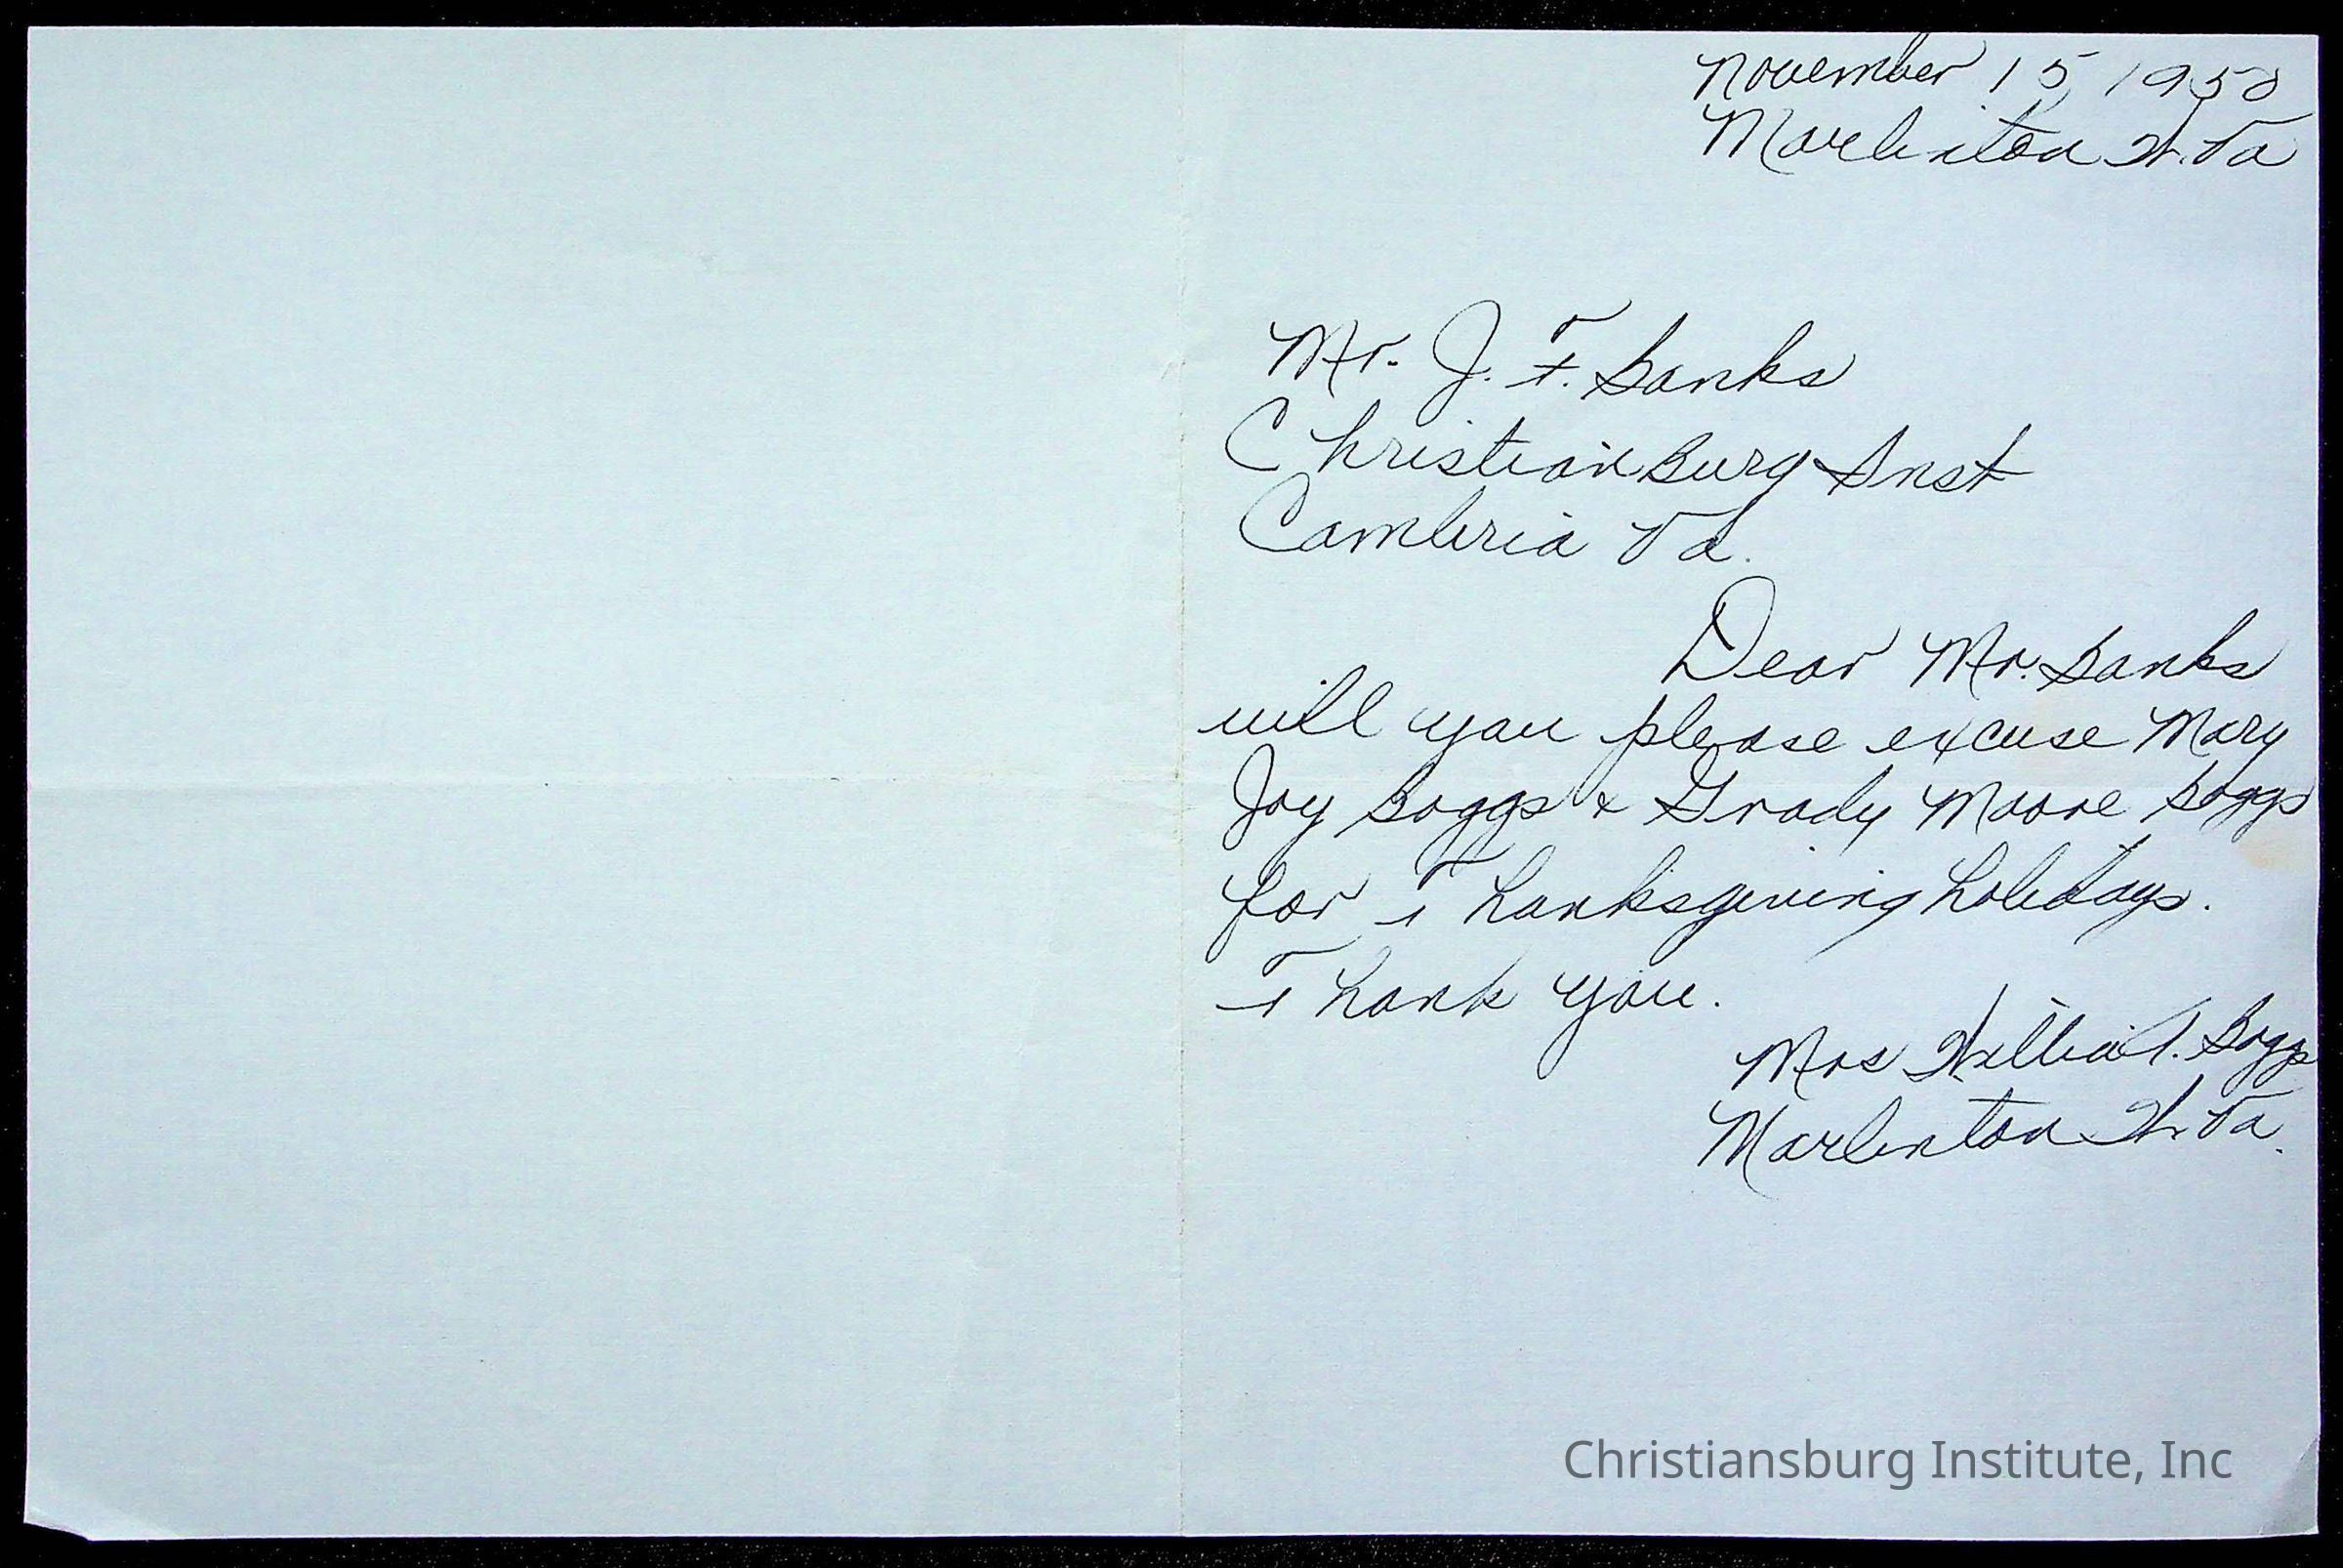 November 15, 1950
Marlinton W. Va
Mr. J. F. Banks
ChristianBurg Inst
Cambria Va.
Dear Mr. Banks
will you please excuse Mary
Joy Boggs & Grady Moore Boggs
for Thanksgiving holidays.
Thank you.
Mrs Boggs
Marlinton W. Va.
Christiansburg Institute, Inc